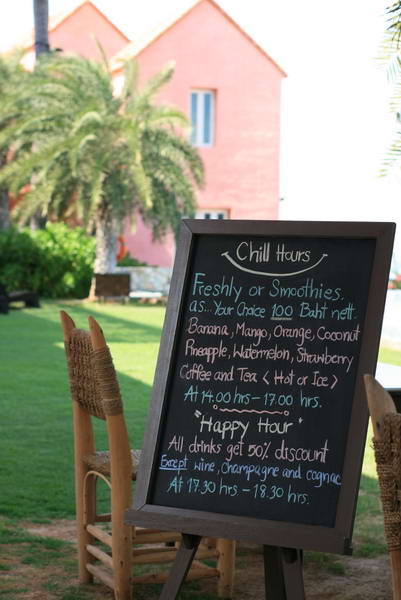 Chill Hours
Freshly or Smoothies.
as... Your Choice 100 Baht nett.
Banana, Mango, Orange, Coconut
Pineapple, Watermelon, Strawberry
Coffee and Tea < Hot or Ice >
At 14.00 hrs - 17.00 hrs.
"Happy Hour"
All drinks get 50% discount
Except wine, Champagne and cognac
At 17.30 hrs - 18.30 hrs.